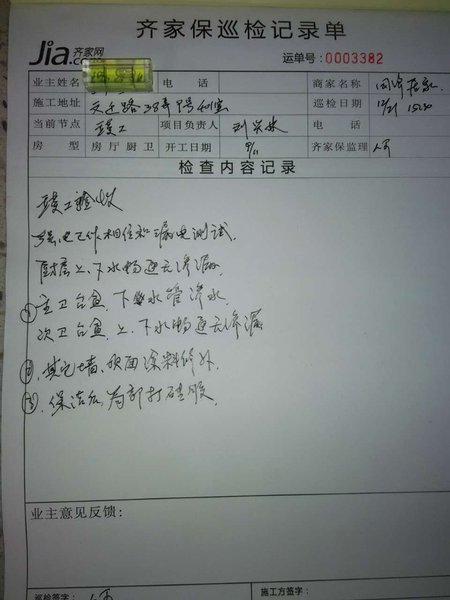 齐家保巡检记录单
Jia.com 齐家网
运单号:0003382
业主姓名 电话 商家名称
施工地址 巡检日期 12/21
当前节点 竣工 项目负责人 电话
房型 房厅厨卫 开工日期 9/11 齐家保监理
检查内容记录
竣工验收
强电工作相位和漏电测试.
厨房上、下水畅通无渗漏.
① 主卫台盆,下水管渗水.
次卫台盆,上、下水畅通无渗漏
② 其它墙、顶面涂料修补.
③ 保洁后,局部打硅胶.
业主意见反馈:
巡检签字: 施工方签字: